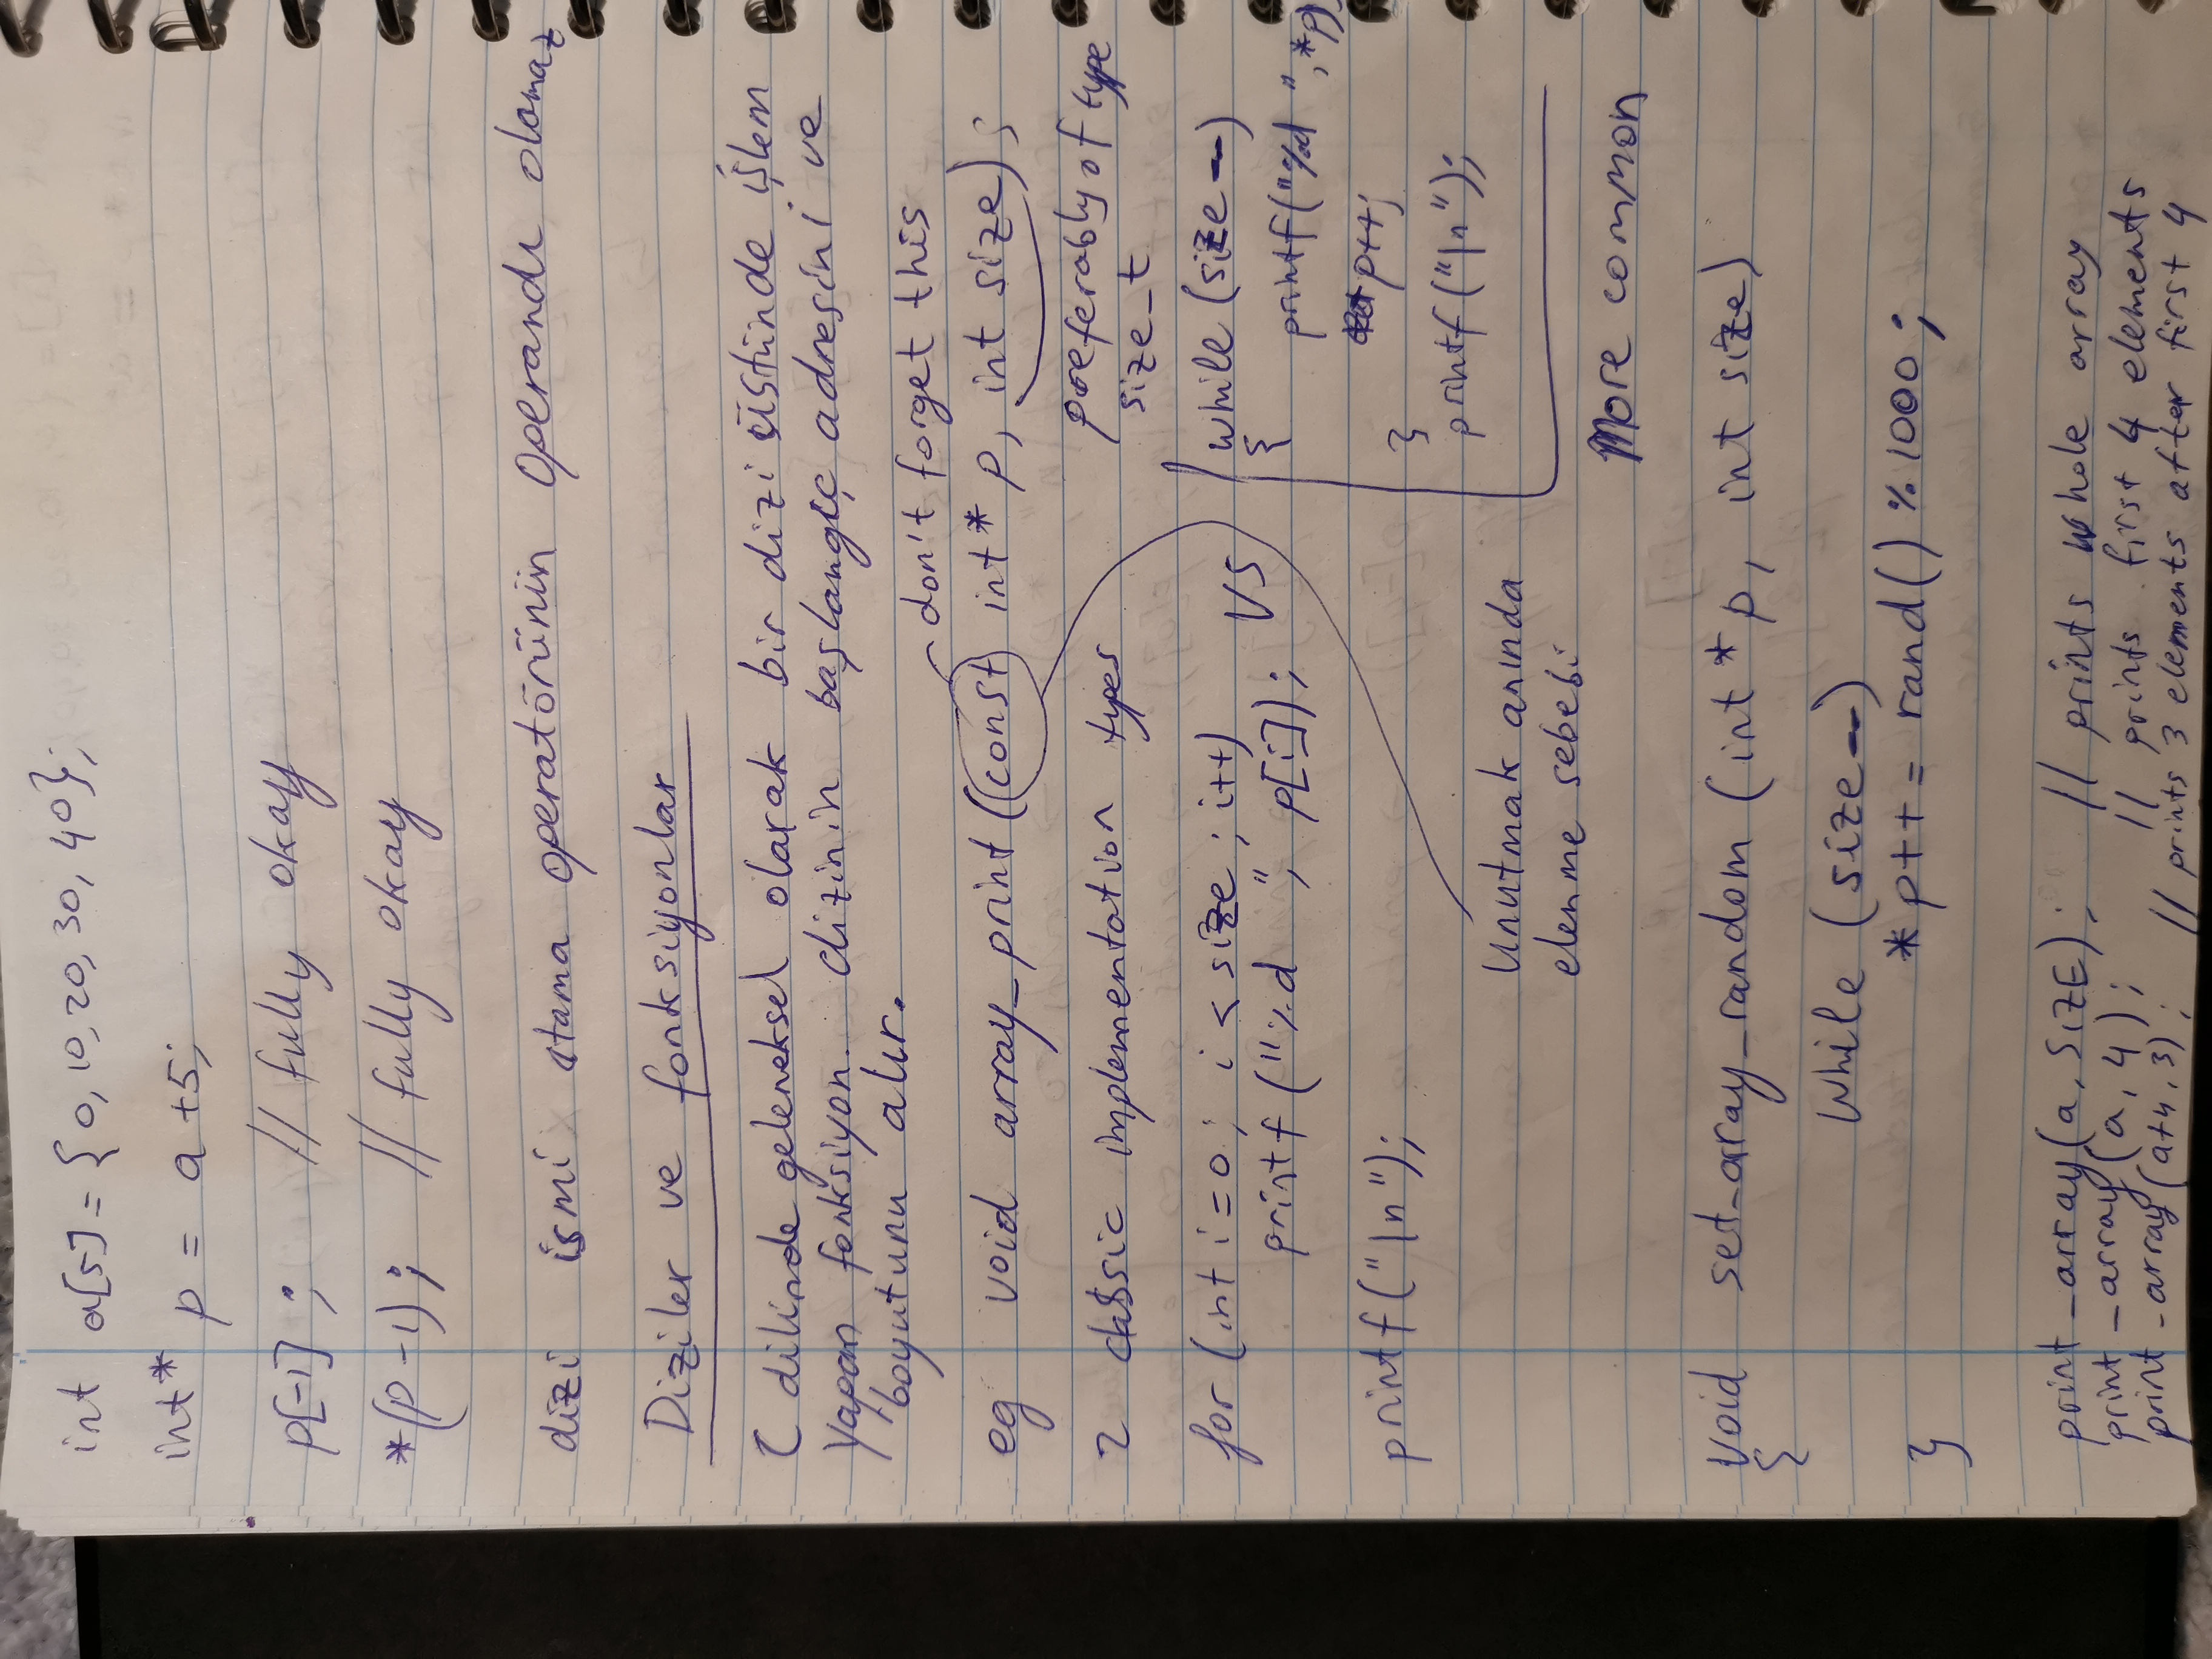 int a[5] = {0, 10, 20, 30, 40};
int* p = a+5;
p[-1]; // fully okay
*(p-1); // fully okay
dizi ismi atama operatörünün operandı olamaz
Diziler ve fonksiyonlar
C dilinde geleneksel olarak bir dizi üstünde işlem
yapan fonksiyon. dizinin başlangıç adresini ve
boyutunu alır.
don't forget this
eg void array_print(const int* p, int size);
preferably of type
size_t
2 classic implementation types
for (int i=0; i < size; i++)
printf("%d ", p[i]);
printf("\n");
vs
while (size--)
{
printf("%d ", *p);
p++;
}
printf("\n");
More common
Unutmak anında
elenme sebebi
void set_array_random (int* p, int size)
{
While (size--)
*p++ = rand() % 1000;
}
print_array(a, SIZE); // prints whole array
print_array(a, 4); // prints first 4 elements
print_array(a+4, 3); // prints 3 elements after first 4